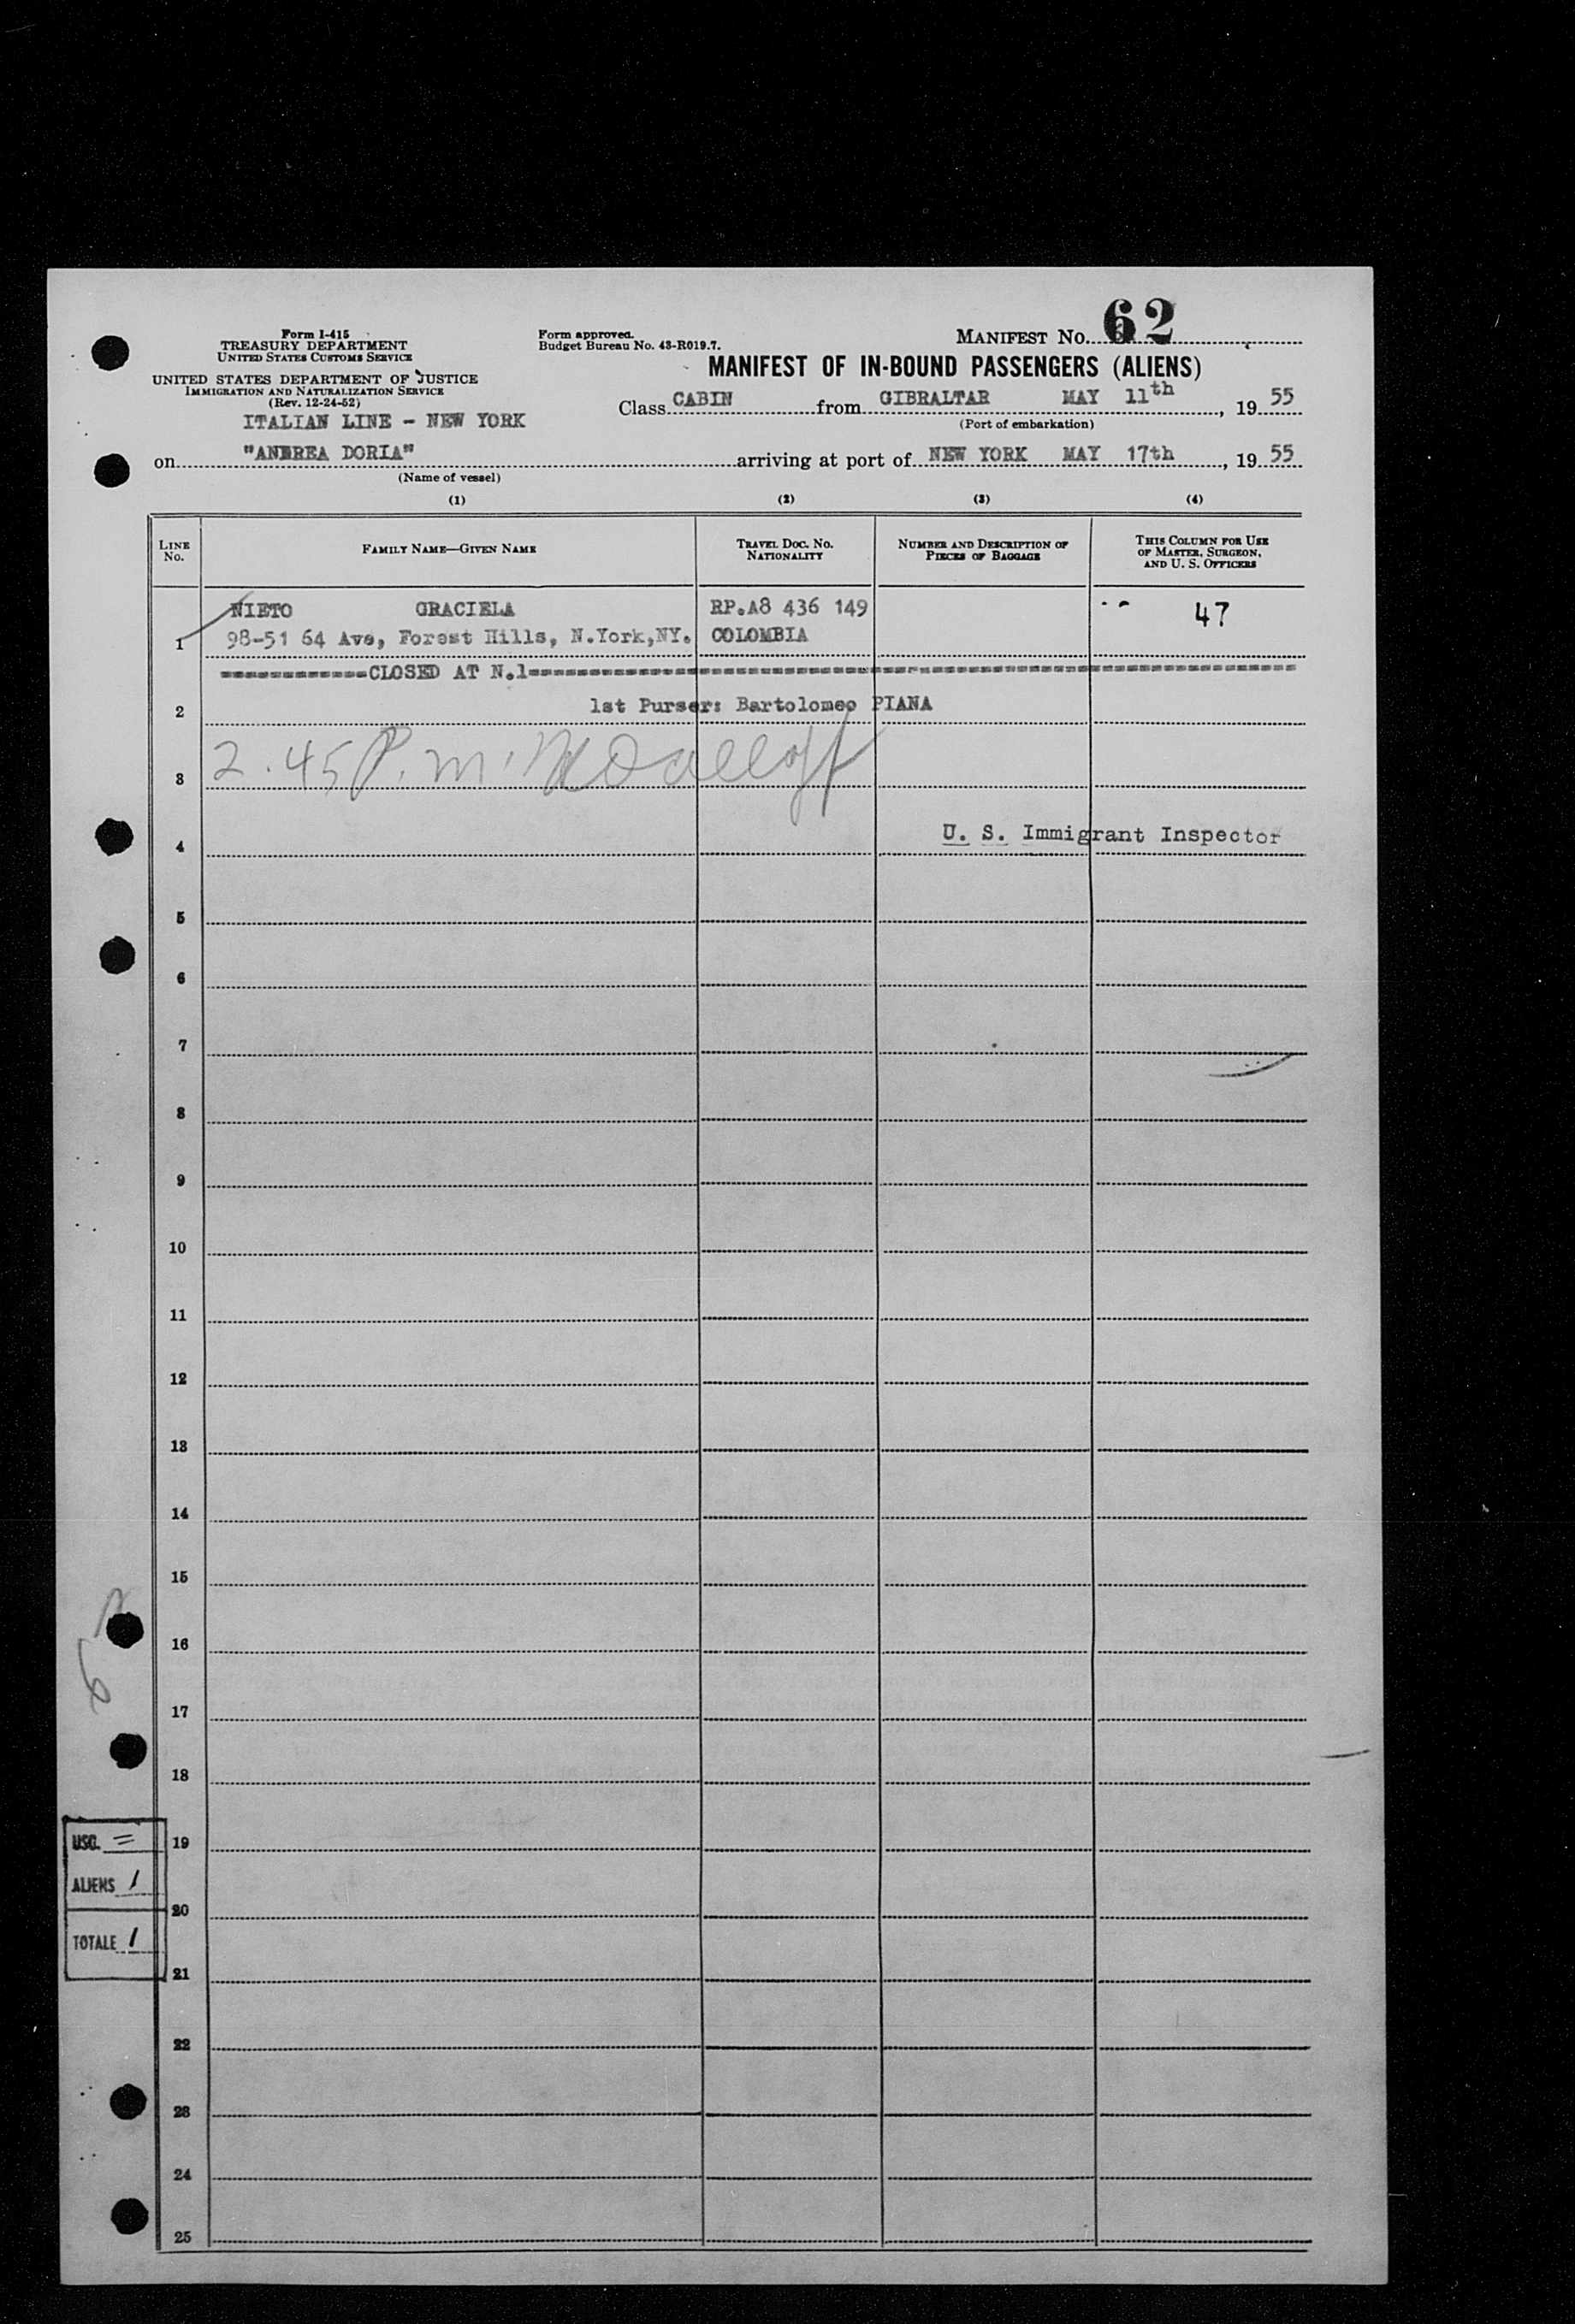 Form I-415
TREASURY DEPARTMENT
UNITED STATES CUSTOMS SERVICE
UNITED STATES DEPARTMENT OF JUSTICE
IMMIGRATION AND NATURALIZATION SERVICE
(Rev. 12-24-52)
Form approved.
Budget Bureau No. 43-R019.7.
MANIFEST NO. 62
MANIFEST OF IN-BOUND PASSENGERS (ALIENS)
ITALIAN LINE - NEW YORK
Class CABIN from GIBRALTAR MAY 11th, 19 55
(Port of embarkation)
on "ANDREA DORIA" arriving at port of NEW YORK MAY 17th, 19 55
(Name of vessel)
(1) (2) (3) (4)
LINE NO.
FAMILY NAME—GIVEN NAME
TRAVEL DOC. NO. NATIONALITY
NUMBER AND DESCRIPTION OF PIECES OF BAGGAGE
THIS COLUMN FOR USE OF MASTER, SURGEON, AND U. S. OFFICERS
NIETO GRACIELA RP.A8 436 149 -- 47
1 98-51 64 Ave, Forest Hills, N.York,NY. COLOMBIA
============CLOSED AT N.1============
2 1st Purser: Bartolomeo PIANA
3 2.45 P.m.
U. S. Immigrant Inspector
4
5
6
7
8
9
10
11
12
13
14
15
16
17
18
USC. =
19
ALIENS 1
20
TOTALE 1
21
22
23
24
25